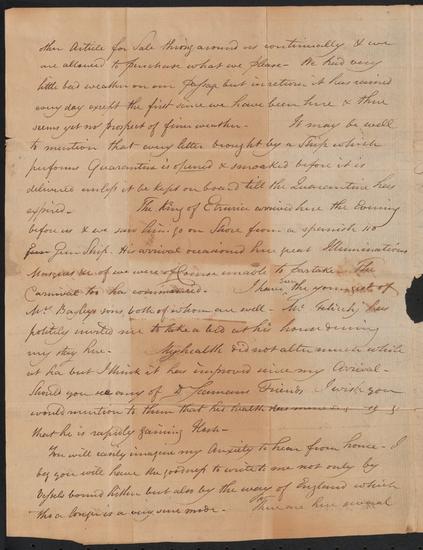 other Article for Sale throng around us continually & we
are allowed to purchase what we please - We had very
little bad weather on our passage but in return it has rained
every day except the first since we have been here & there
seems yet no prospect of finer weather - It may be well
to mention that every letter brought by a Ship which
performs Quarantine is opened & smoaked before it is
delivered unless it be kept on board till the Quarantine has
expired - The King of Etruria arrived here the Evening
before us & we saw him go on Shore from a spanish 110
Gun Ship. His arrival occasioned here great Illuminations
Masquerades &c of which we were of course unable to partake - The
Carnival too has commenced - I have seen the youngest of
Mr Bayleys sons, both of whom are well - Mr has
politely invited me to take a bed at his house during
my stay here - My health did not alter much while
at sea but I think it has improved since my Arrival -
Should you see any of Dr Friends I wish you
would mention to them that his health has
that he is rapidly gaining flesh -
You will easily imagine my Anxiety to hear from home - I
beg you will have the goodness to write to me not only by
Vessels bound hither but also by the way of England which
tho a longer is a very sure mode - There are here several